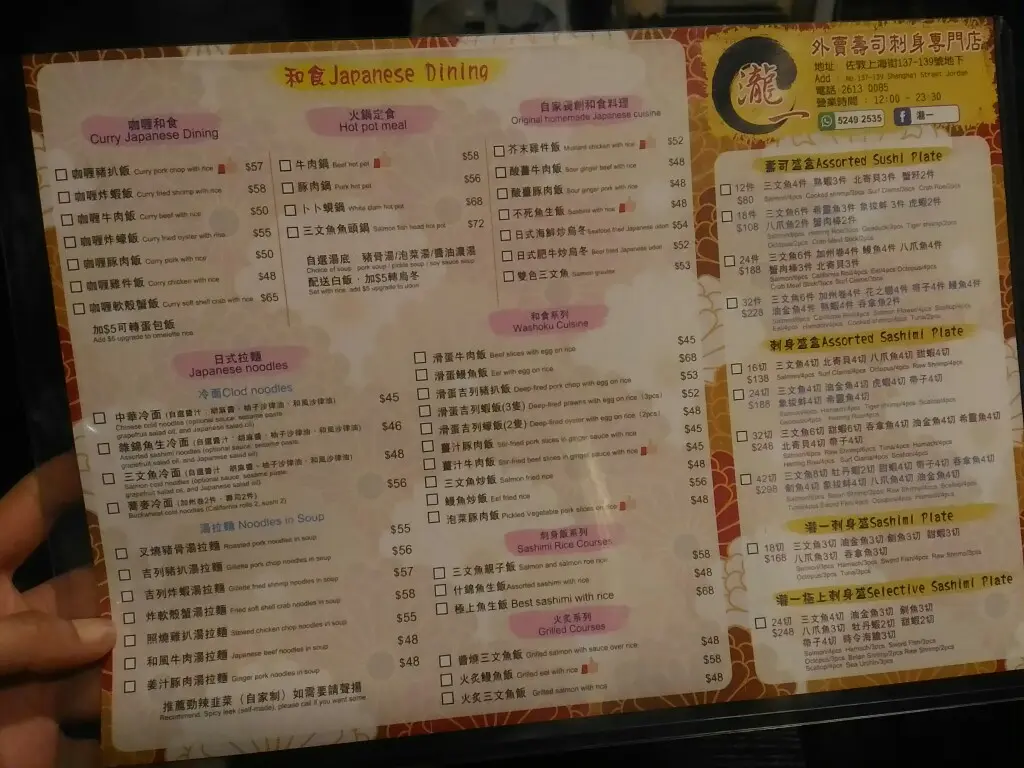 和食Japanese Dining
咖喱和食
Curry Japanese Dining
咖喱豬扒飯 Curry pork chop with rice $57
咖喱炸蝦飯 Curry fried shrimp with rice $58
咖喱牛肉飯 Curry beef with rice $50
咖喱炸蠔飯 Curry fried oyster with rice $55
咖喱豚肉飯 Curry pork with rice $50
咖喱雞件飯 Curry chicken with rice $48
咖喱軟殼蟹飯 Curry soft shell crab with rice $65
加$5可轉蛋包飯
Add $5 upgrade to omelette rice
火鍋定食
Hot pot meal
牛肉鍋 Beef hot pot $58
豚肉鍋 Pork hot pot $56
卜卜蜆鍋 White clam hot pot $68
三文魚魚頭鍋 Salmon fish head hot pot $72
自選湯底 豬骨湯/泡菜湯/醬油濃湯
Choice of soup : pork soup / pickle soup / soy sauce soup
配送白飯，加$5轉烏冬
Set with rice, add $5 upgrade to udon
自家製創和食料理
Original homemade Japanese cuisine
芥末雞件飯 Mustard chicken with rice $52
酸薑牛肉飯 Sour ginger beef with rice $48
酸薑豚肉飯 Sour ginger pork with rice $48
不死魚生飯 Sashimi with rice $48
日式海鮮炒烏冬 Seafood fried Japanese udon $54
日式肥牛炒烏冬 Beef fried Japanese udon $52
雙色三文魚 Salmon gravlax $53
日式拉麵
Japanese noodles
冷面Clod noodles
中華冷面 (自選醬汁：胡麻醬、柚子沙律油、和風沙律油) $45
Chinese cold noodles (optional sauce: sesame paste,
grapefruit salad oil, and Japanese salad oil)
雜錦魚生冷面 (自選醬汁：胡麻醬、柚子沙律油、和風沙律油) $46
Assorted sashimi noodles (optional sauce: sesame paste,
grapefruit salad oil, and Japanese salad oil)
三文魚冷面 (自選醬汁：胡麻醬、柚子沙律油、和風沙律油) $48
Salmon cold noodles (optional sauce: sesame paste,
grapefruit salad oil, and Japanese salad oil)
蕎麥冷面 (加州卷2件、壽司2件) $56
Buckwheat cold noodles (California rolls 2, sushi 2)
湯拉麵 Noodles in Soup
叉燒豬骨湯拉麵 Roasted pork noodles in soup $55
吉列豬扒湯拉麵 Gillette pork chop noodles in soup $56
吉列炸蝦湯拉麵 Gillette fried shrimp noodles in soup $57
炸軟殼蟹湯拉麵 Fried soft shell crab noodles in soup $58
照燒雞扒湯拉麵 Stewed chicken chop noodles in soup $55
和風牛肉湯拉麵 Japanese beef noodles in soup $48
姜汁豚肉湯拉麵 Ginger pork noodles in soup $48
推薦勁辣韭菜（自家制）如需要請聲揚
Recommend: Spicy leek (self-made), please call if you want some
和食系列
Washoku Cuisine
滑蛋牛肉飯 Beef slices with egg on rice $45
滑蛋鰻魚飯 Eel with egg on rice $68
滑蛋吉列豬扒飯 Deep-fired pork chop with egg on rice $53
滑蛋吉列蝦飯(3隻) Deep-fired prawns with egg on rice (3pcs) $52
滑蛋吉列蠔飯(2隻) Deep-fired oyster with egg on rice (2pcs) $48
薑汁豚肉飯 Stir-fried pork slices in ginger sauce with rice $45
薑汁牛肉飯 Stir-fried beef slices in ginger sauce with rice $45
三文魚炒飯 Salmon fried rice $48
鰻魚炒飯 Eel fried rice $56
泡菜豚肉飯 Pickled Vegetable pork slices on rice $48
刺身飯系列
Sashimi Rice Courses
三文魚親子飯 Salmon and salmon roe rice $58
什錦魚生飯 Assorted sashimi with rice $48
極上魚生飯 Best sashimi with rice $68
火炙系列
Grilled Courses
醬燒三文魚飯 Grilled salmon with sauce over rice $48
火炙鰻魚飯 Grilled eel with rice $58
火炙三文魚飯 Grilled salmon with rice $48
瀧一
外賣壽司刺身專門店
地址 佐敦上海街137-139號地下
Add : No.137-139 Shanghai Street Jordan
電話 2613 0085
營業時間 : 12:00 - 23:30
5249 2535
瀧一
壽司盛盒Assorted Sushi Plate
12件 三文魚4件 熟蝦3件 北寄貝3件 蟹籽2件
$80 Salmon/4pcs Cooked shrimp/3pcs Surf Clams/3pcs Crab Roe/2pcs
18件 三文魚6件 希靈魚3件 象拔蚌 3件 虎蝦2件
$108 八爪魚2件 蟹肉棒2件
24件 三文魚6件 加州卷4件 鰻魚4件 八爪魚4件
$168 蟹肉棒3件 北寄貝3件
32件 三文魚6件 加州卷4件 花之戀4件 帶子4件 鰻魚4件
$228 油金魚4件 熟蝦4件 吞拿魚2件
刺身盛盒Assorted Sashimi Plate
16切 三文魚4切 北寄貝4切 八爪魚4切 甜蝦4切
$138 Salmon/4pcs Surf Clams/4pcs Octopus/4pcs Raw Shrimp/4pcs
24切 三文魚4切 油金魚4切 虎蝦4切 帶子4切
$188 象拔蚌4切 希靈魚4切
32切 三文魚6切 甜蝦6切 吞拿魚4切 油金魚4切 希靈魚4切
$248 北寄貝4切 帶子4切
42切 三文魚6切 牡丹蝦2切 甜蝦4切 帶子4切 吞拿魚6切
$298 劍魚4切 象拔蚌4切 八爪魚4切 油金魚4切
瀧一刺身盛Sashimi Plate
18切 三文魚3切 油金魚3切 劍魚3切 甜蝦3切
$168 八爪魚3切 吞拿魚3切
Salmon/3pcs Hamachi/3pcs Sword Fish/3pcs Raw Shrimp/3pcs
Octopus/3pcs Tuna/3pcs
瀧一極上刺身盛Selective Sashimi Plate
24切 三文魚4切 油金魚3切 劍魚3切
$248 八爪魚3切 牡丹蝦2切 甜蝦2切
帶子4切 時令海膽3切
Salmon/4pcs Hamachi/3pcs Sword Fish/3pcs
Octopus/3pcs Botan Shrimp/2pcs Raw Shrimp/2pcs
Scallop/4pcs Sea Urchin/3pcs